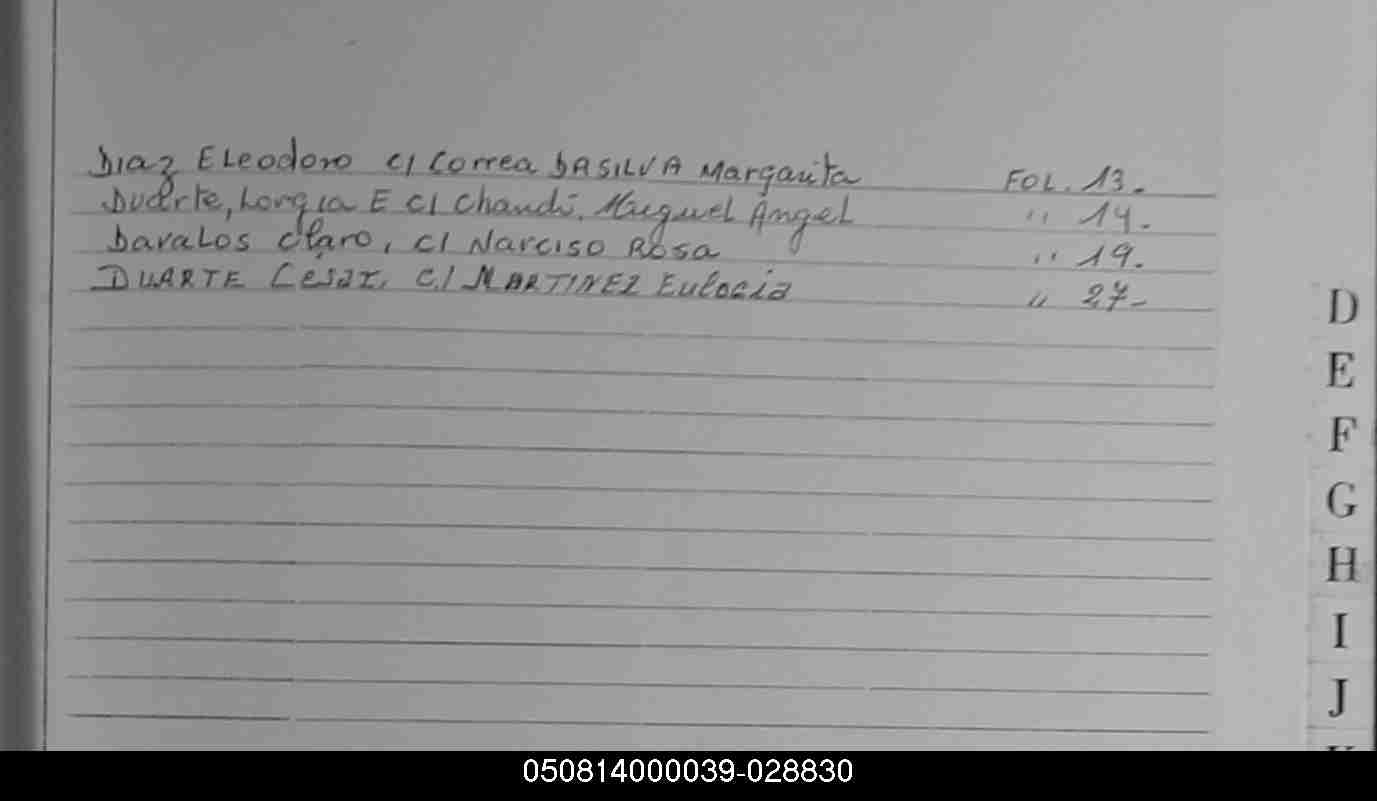 Diaz Eleodoro c/ Correa DASILVA Margarita FOL. 13.
Duarte, Lorgia E c/ Chandi, Miguel Angel " 14.
Davalos Claro, c/ Narciso Rosa " 19.
DUARTE Cesar, c/ MARTINEZ Eulogia " 27-
D
E
F
G
H
I
J
050814000039-028830